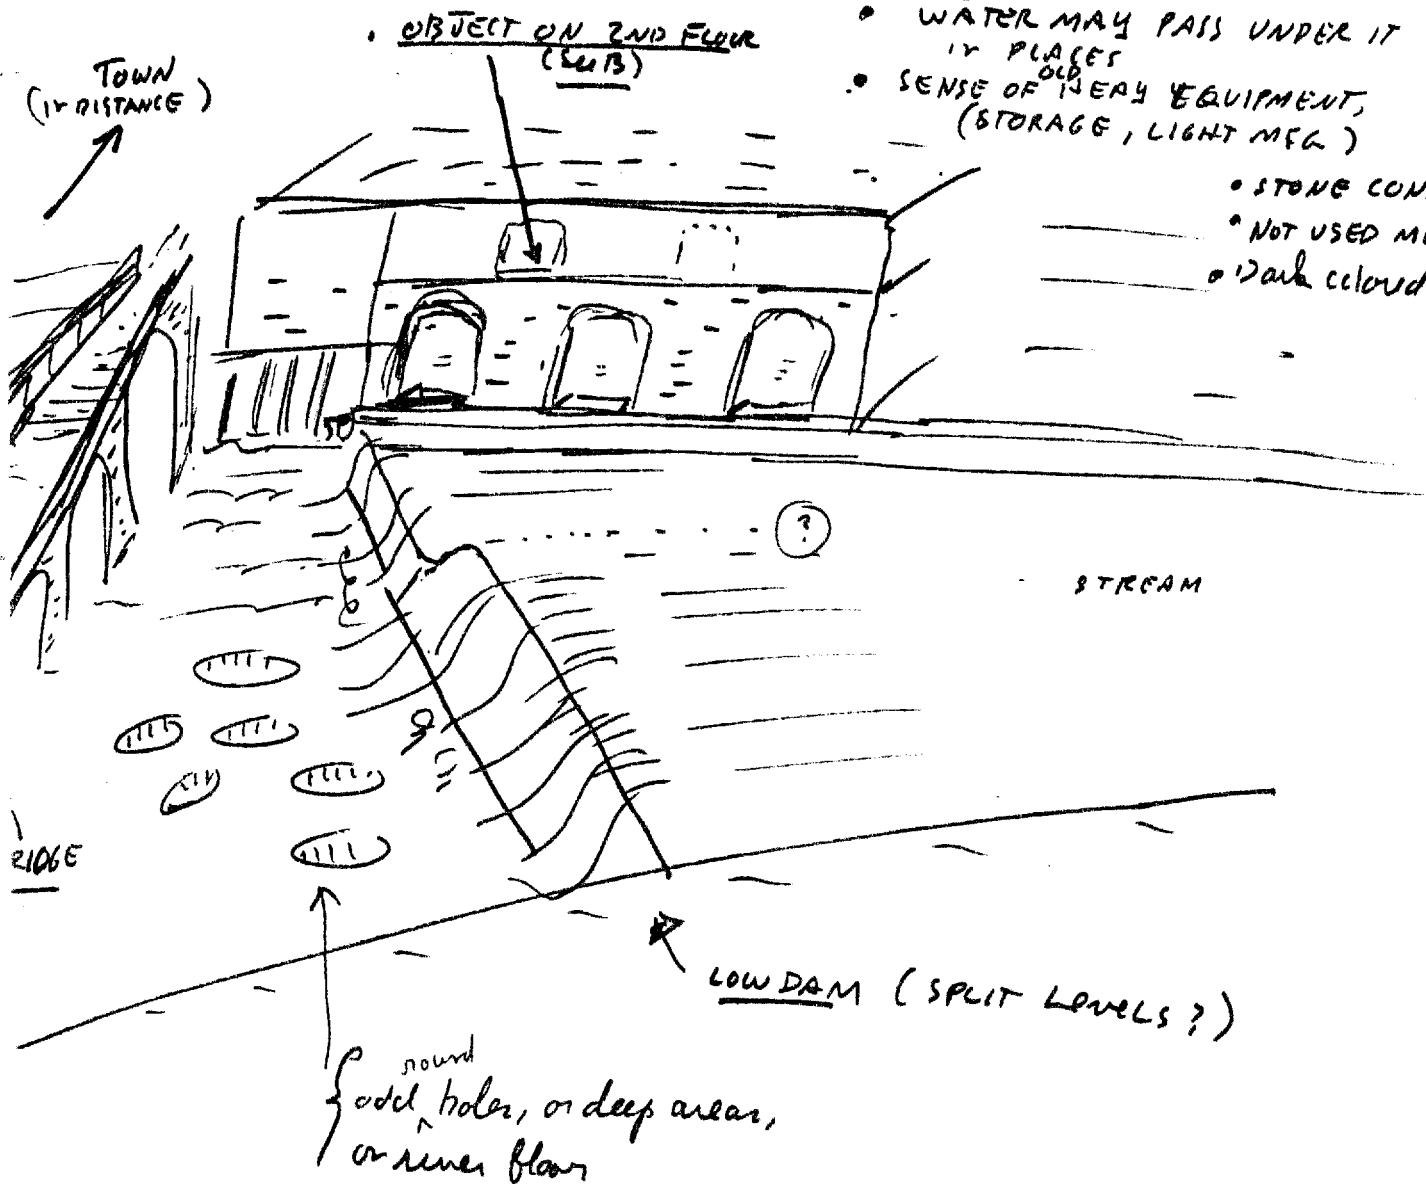 . OBJECT ON 2ND FLOOR
(SUB)
TOWN
(IN DISTANCE)
• WATER MAY PASS UNDER IT
IN PLACES
• SENSE OF OLD HEAY EQUIPMENT,
(STORAGE, LIGHT MFG)
• STONE CON
• NOT USED M
• Dark colored
?
STREAM
RIDGE
LOW DAM (SPLIT LEVELS?)
odd round holes, or deep areas,
on river floor